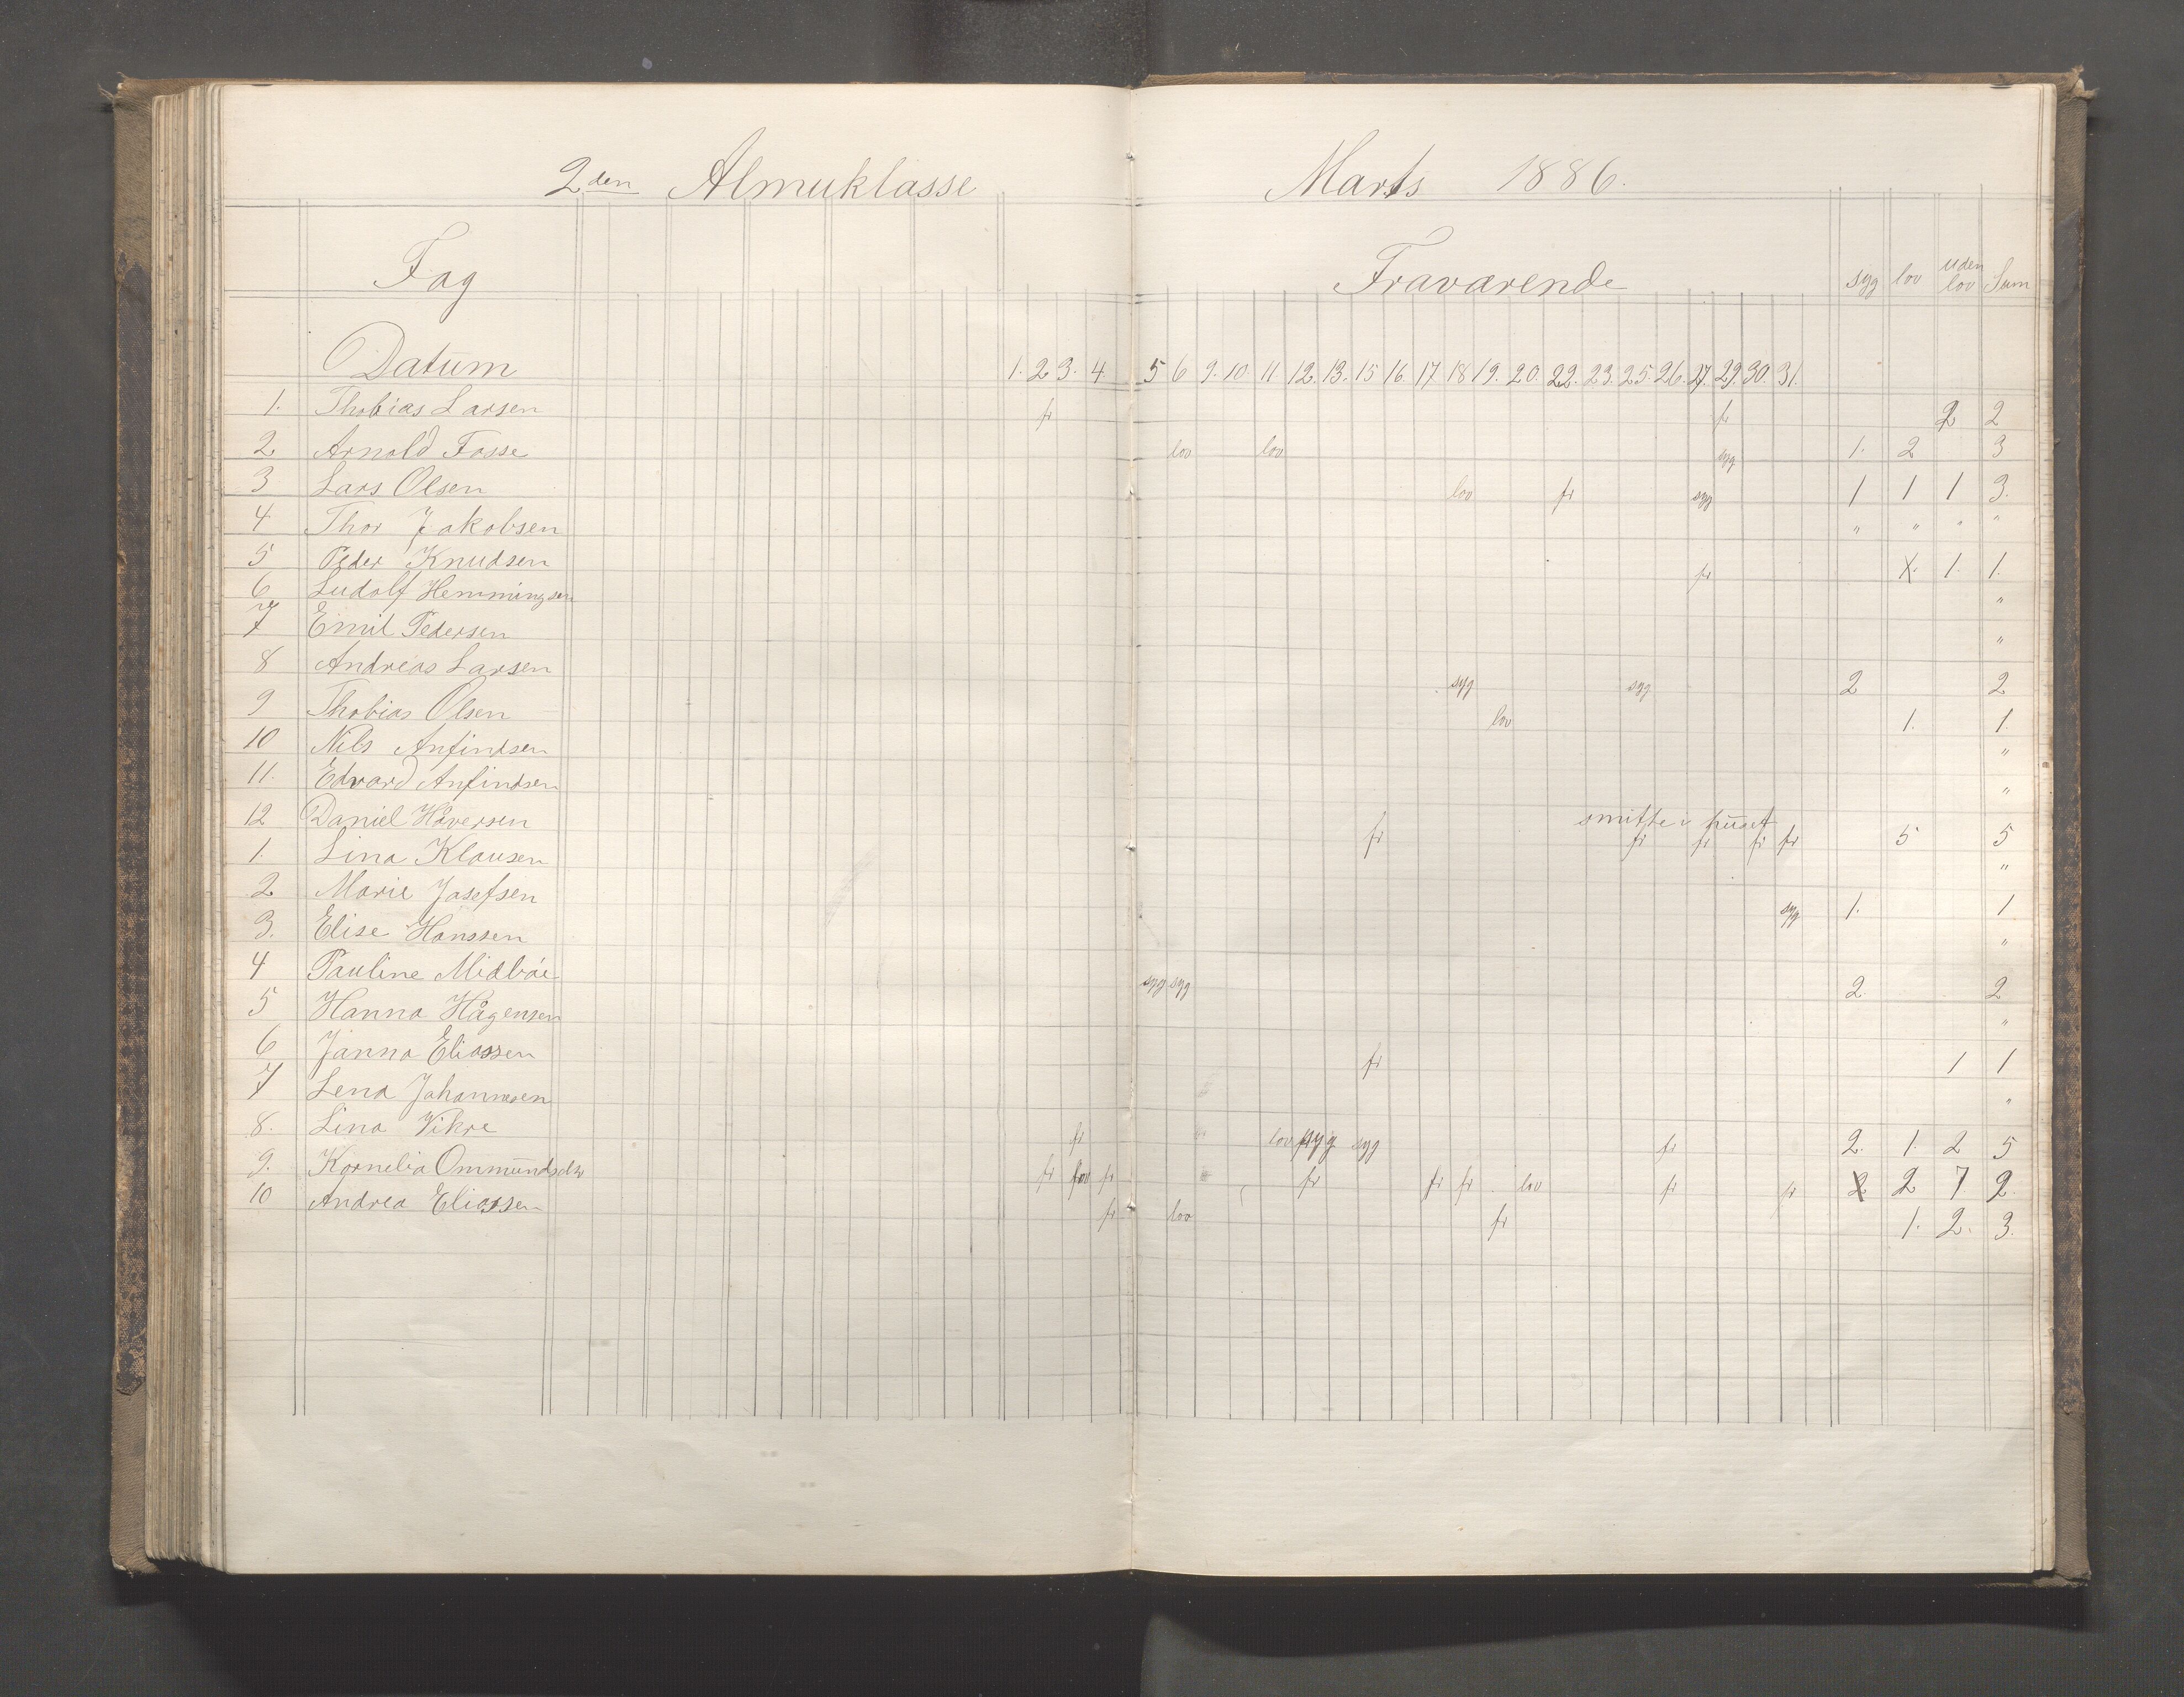 2den Almuklasse Marts 1886.
Fag Fraværende syg lov uden lov Sum
Datum 1. 2 3. 4 5 6 9. 10 11 12. 13. 15 16. 17 18 19. 20. 22. 23. 25. 26. 27. 29. 30. 31.
1. Thobias Larsen fr fr 2 2
2 Arnold Fosse lov lov syg 1. 2 3
3 Lars Olsen lov fr syg 1 1 1 3.
4. Thor Jakobsen " " " "
5 Peder Knudsen fr 1. 1.
6 Ludolf Hemmingsen "
7 Emil Pedersen "
8 Andreas Larsen syg syg 2 2
9 Thobias Olsen lov 1. 1.
10 Nils Anfindsen "
11. Edvard Anfindsen "
12 Daniel Håversen fr smitte i huset fr fr fr fr 5 5
1. Lina Klausen "
2 Marie Josefsen syg 1. 1
3. Elise Hanssen "
4 Pauline Midbøe syg syg 2. 2
5 Hanna Hågensen "
6 Janna Eliassen fr 1 1
7 Lena Johannesen "
8. Lina Vikre fr lov syg syg fr 2. 1. 2 5
9. Kornelia Ommundsdtr fr lov fr fr fr fr lov fr fr 2 7. 9.
10 Andrea Eliassen fr lov fr 1. 2. 3.